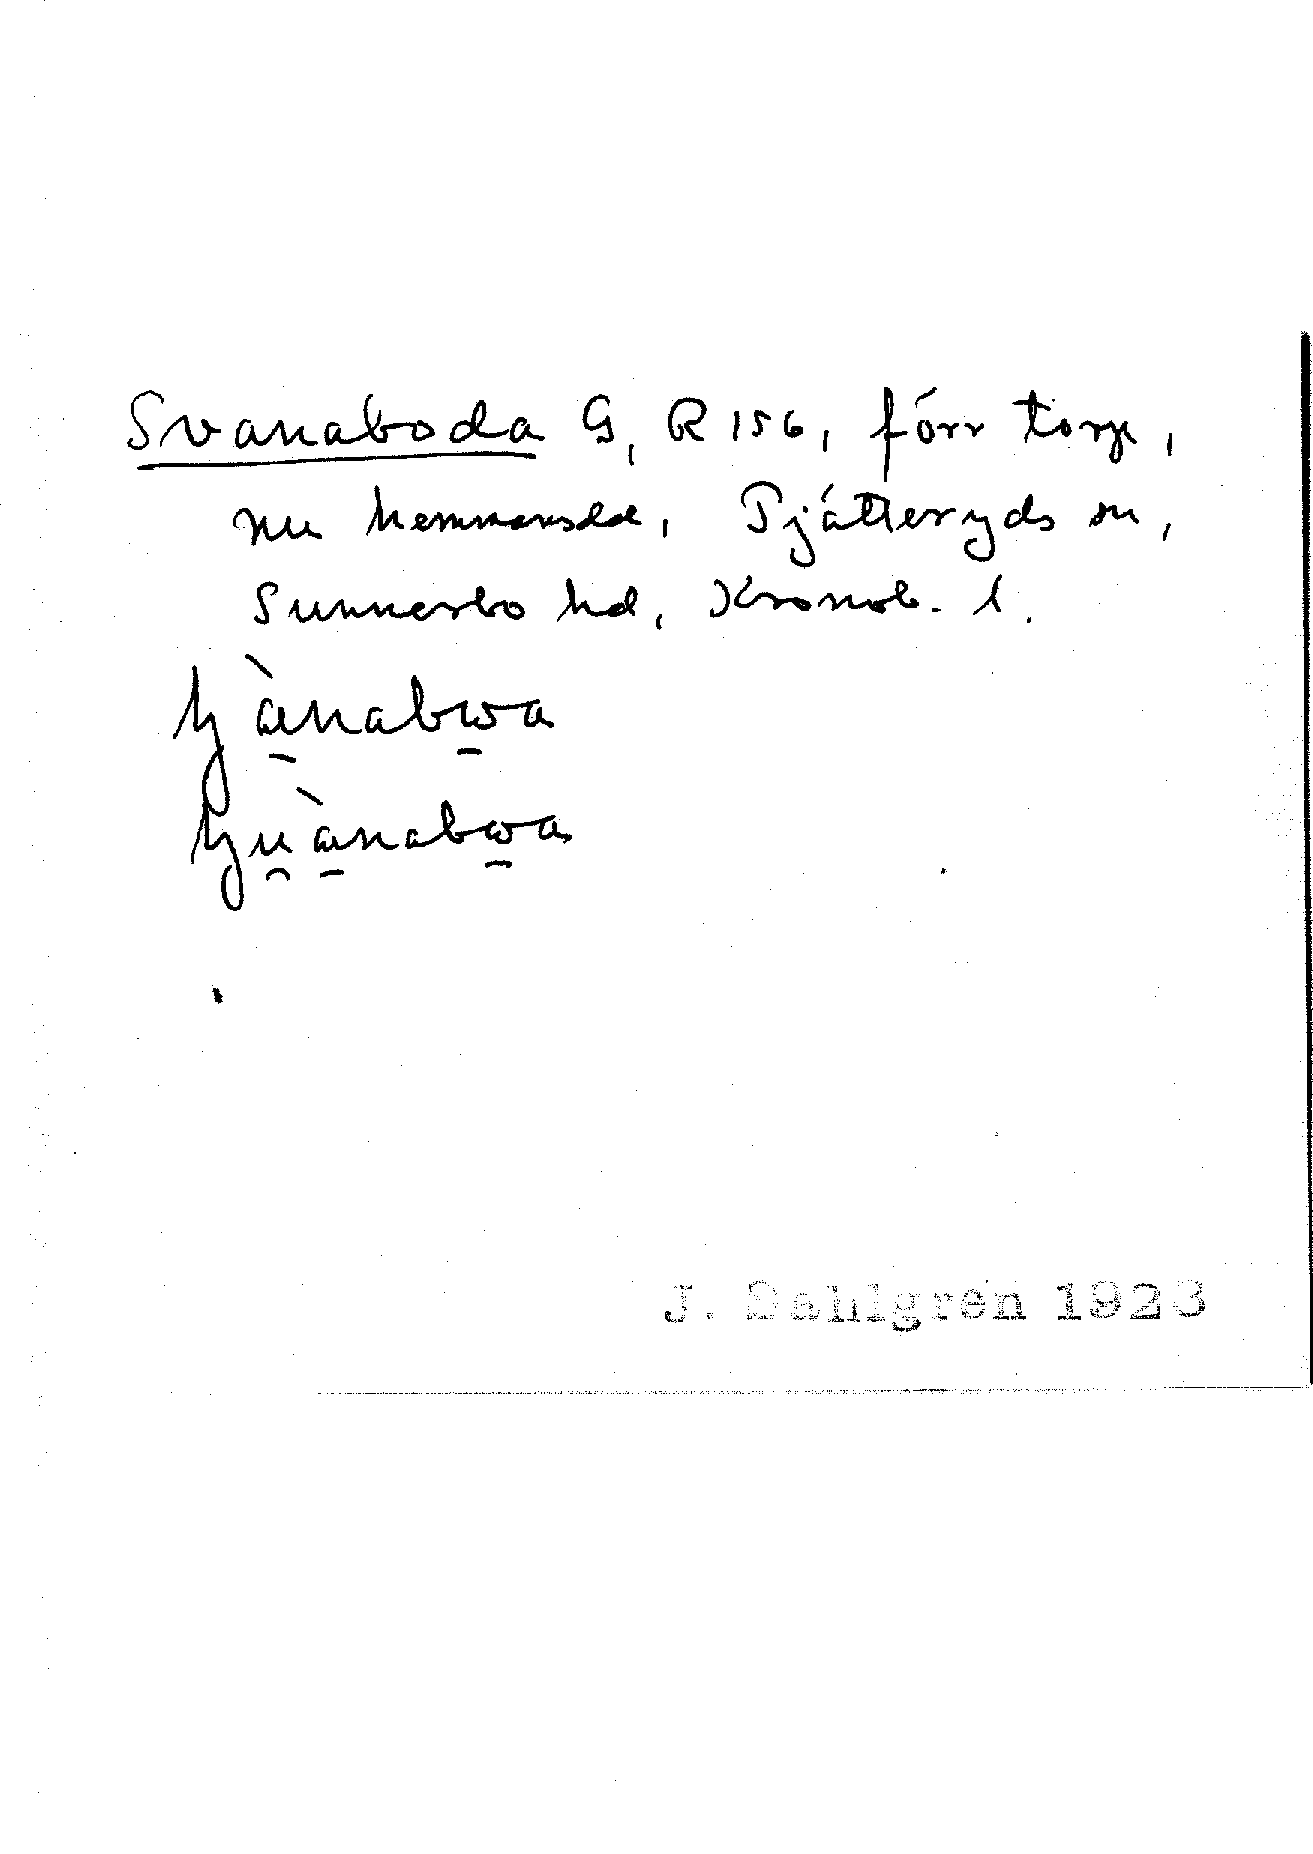 Svanaboda G, R 156, förr torp,
nu hemmansdel, Pjätteryds sn,
Sunnerbo hd, Kronob. l.
J. Dahlgren 1923